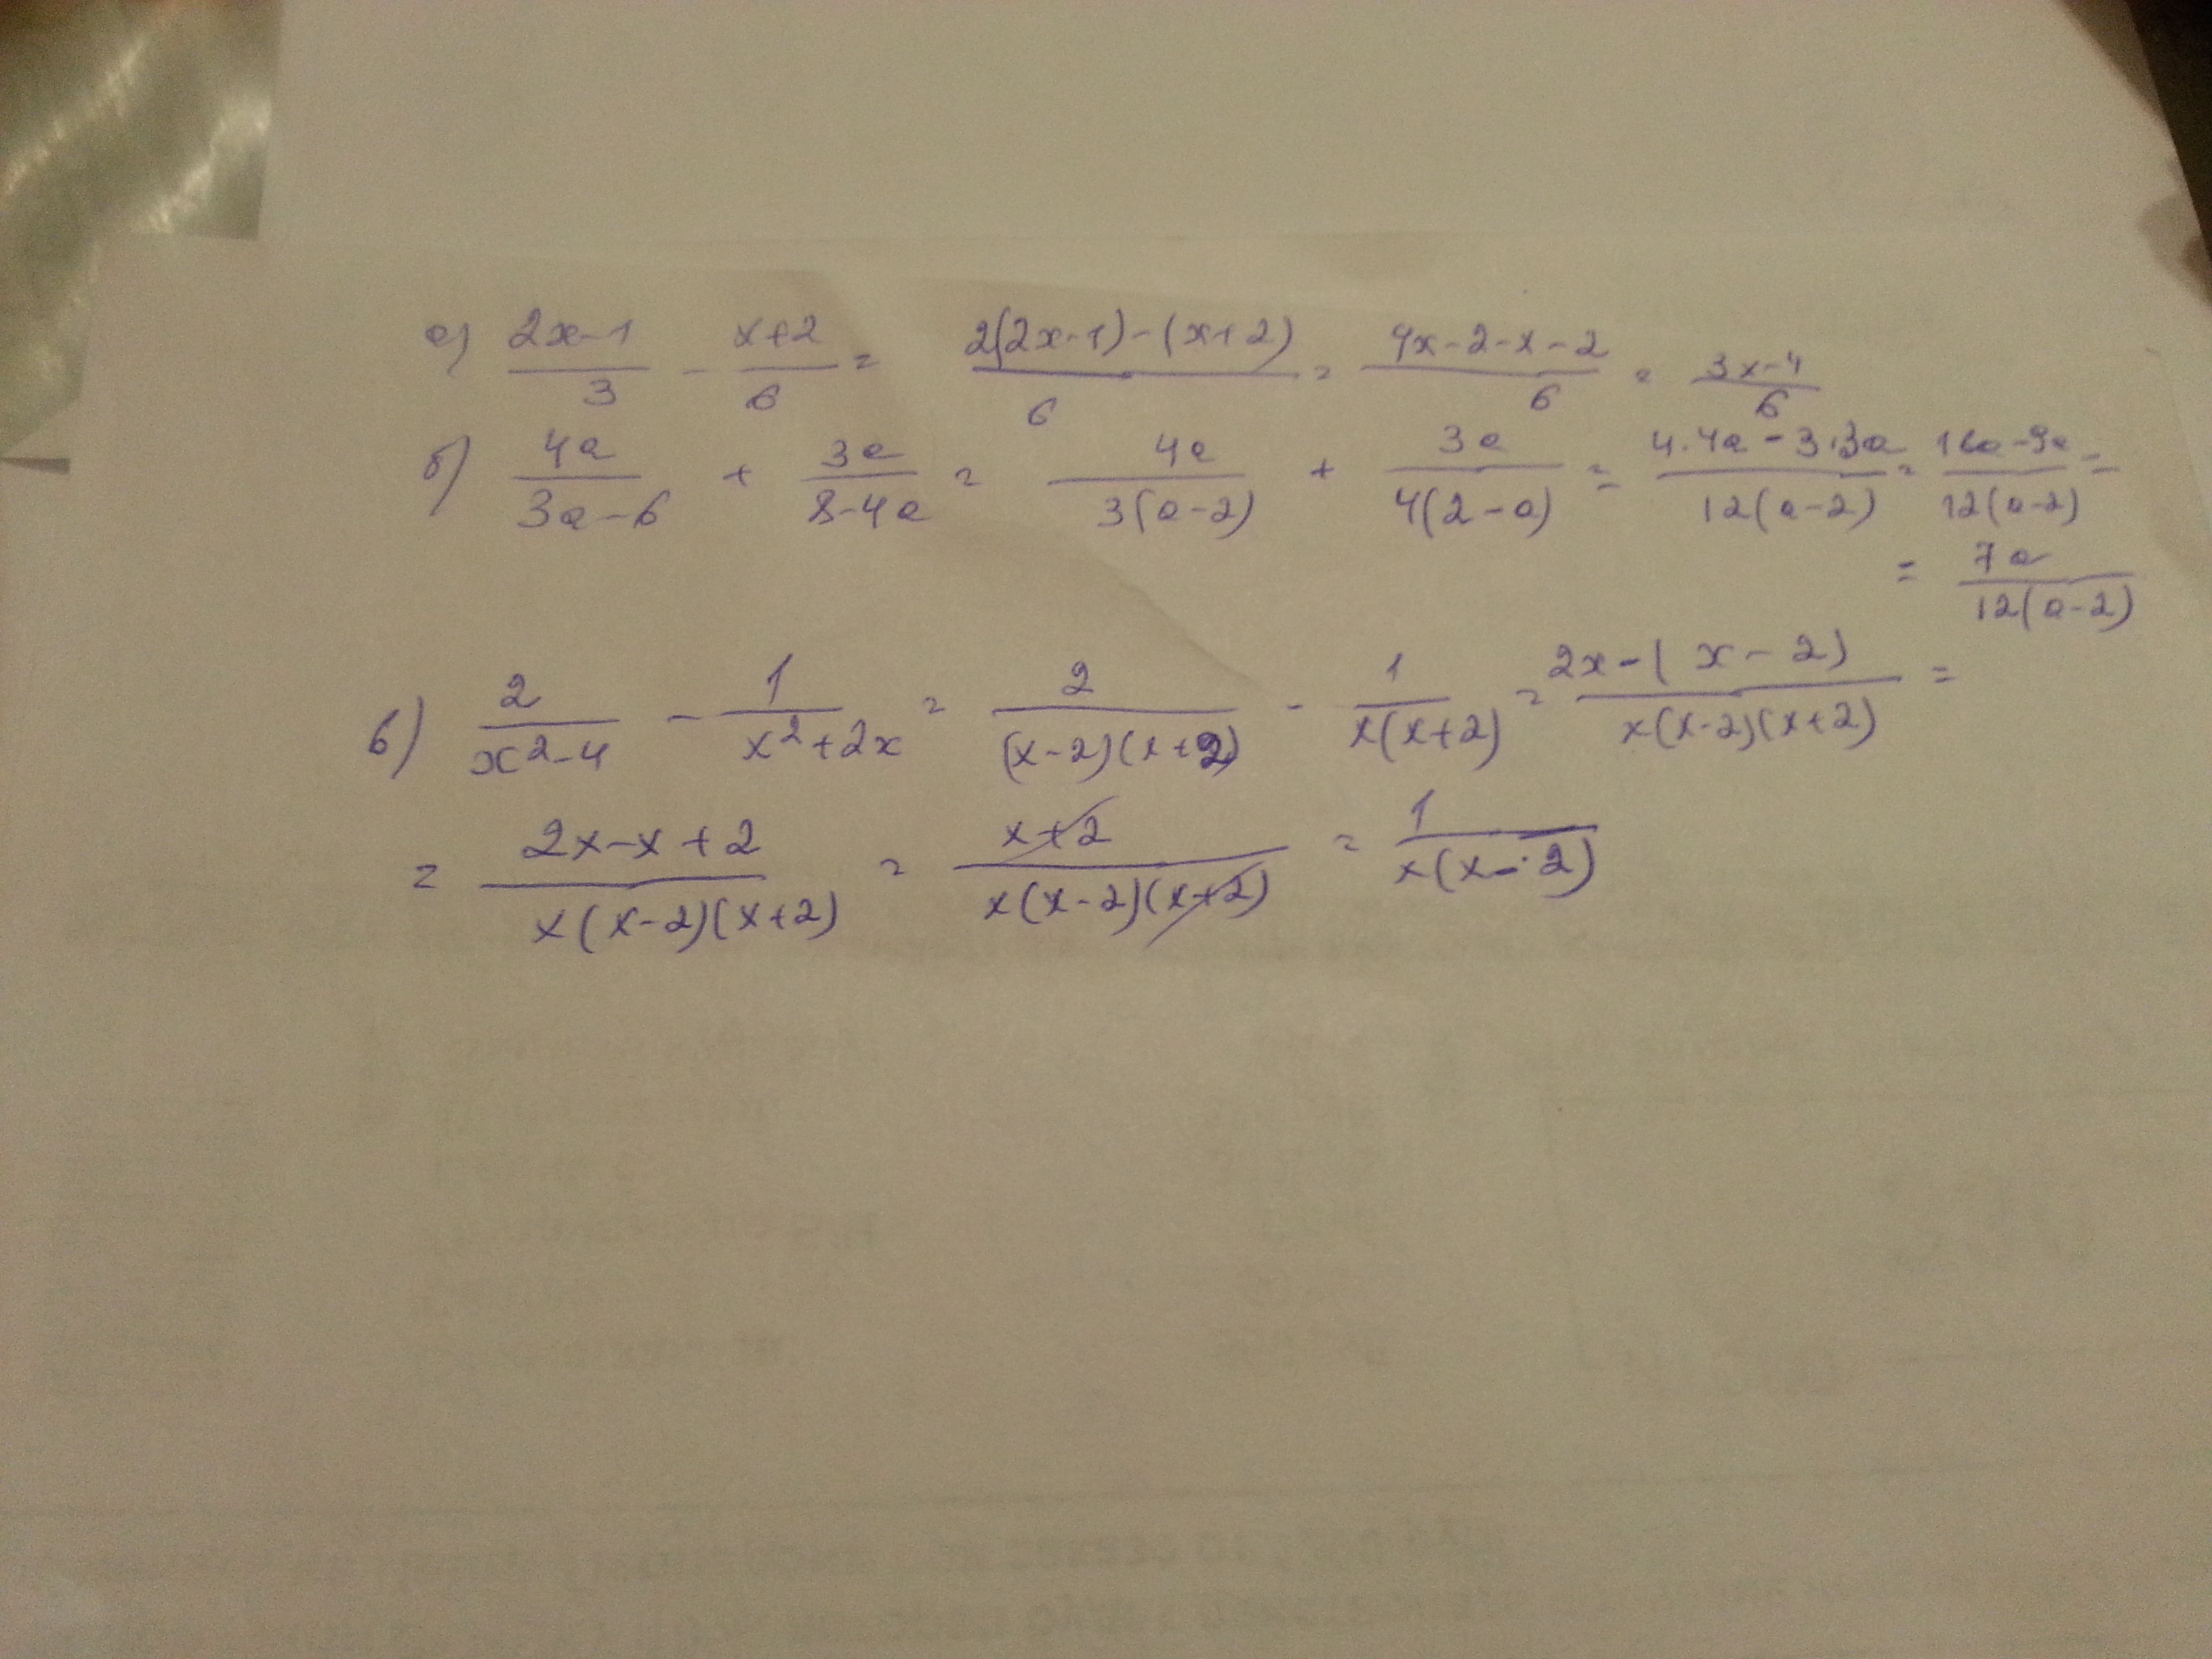 а) (2x-1)/3 - (x+2)/6 = (2(2x-1)-(x+2))/6 = (4x-2-x-2)/6 = (3x-4)/6
б) 4a/(3a-6) + 3a/(8-4a) = 4a/(3(a-2)) + 3a/(4(2-a)) = (4·4a-3·3a)/(12(a-2)) = (16a-9a)/(12(a-2)) =
= 7a/(12(a-2))
в) 2/(x²-4) - 1/(x²+2x) = 2/((x-2)(x+2)) - 1/(x(x+2)) = (2x-(x-2))/(x(x-2)(x+2)) =
= (2x-x+2)/(x(x-2)(x+2)) = (x+2)/(x(x-2)(x+2)) = 1/(x(x-2))